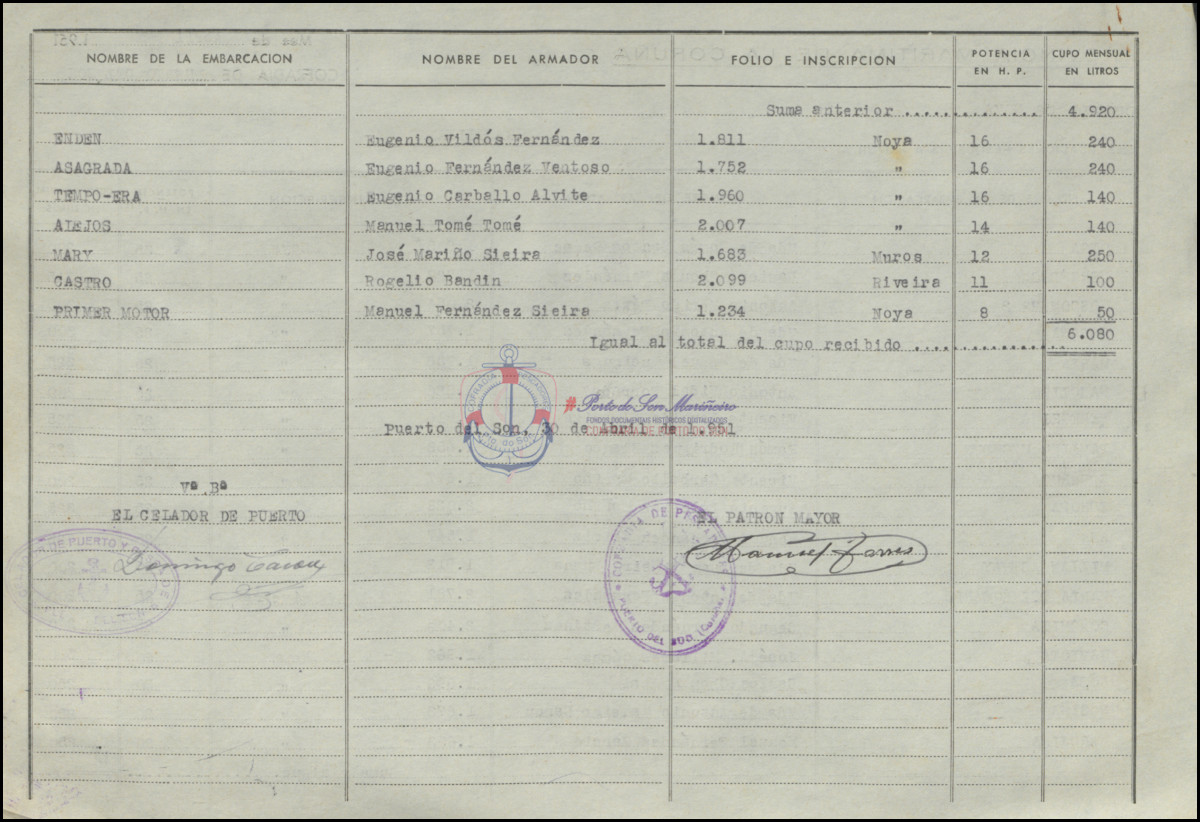 NOMBRE DE LA EMBARCACION NOMBRE DEL ARMADOR FOLIO E INSCRIPCION POTENCIA EN H. P. CUPO MENSUAL EN LITROS
Suma anterior .............. 4.920
ENDEN Eugenio Vildós Fernández 1.811 Noya 16 240
ASAGRADA Eugenio Fernández Ventoso 1.752 " 16 240
TEMPO-ERA Eugenio Carballo Alvite 1.960 " 16 140
ALEJOS Manuel Tomé Tomé 2.007 " 14 140
MARY José Mariño Sieira 1.683 Muros 12 250
CASTRO Rogelio Bandin 2.099 Riveira 11 100
PRIMER MOTOR Manuel Fernández Sieira 1.234 Noya 8 50
Igual al total del cupo recibido ............... 6.080
#Porto do Son Mariñeiro
FONDOS DOCUMENTAIS HISTÓRICOS DIGITALIZADOS
Puerto del Son, 30 de Abril de 1.951
Vº.Bº
EL CELADOR DE PUERTO EL PATRON MAYOR
Domingo Manuel Torres
COFRADIA DE PESCADORES
PUERTO DEL SON (Coruña)
DE PUERTO Y